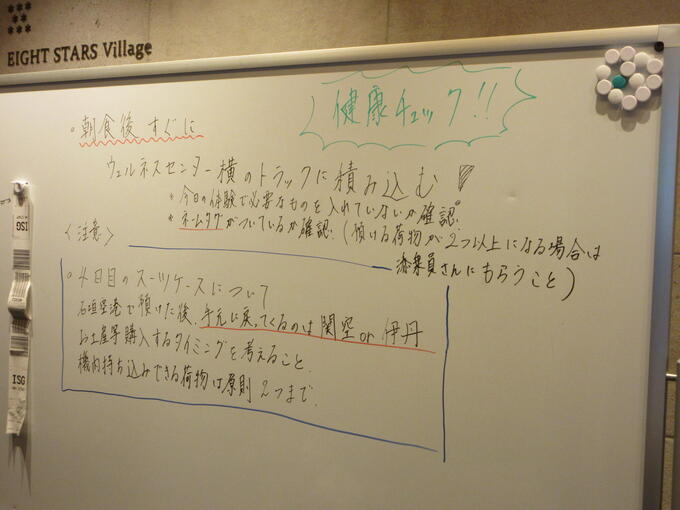 EIGHT STARS Village
健康チェック!!
・朝食後すぐに
ウェルネスセンター横のトラックに積み込む!
*今日の体験で必要なものを入れていないか確認。
*ネームタグがついているか確認。(預ける荷物が2つ以上になる場合は
添乗員さんにもらうこと)
<注意>
・4日目のスーツケースについて
石垣空港で預けた後、手元に戻ってくるのは関空or伊丹
お土産等購入するタイミングを考えること。
機内持ち込みできる荷物は原則2つまで。
ISG
ISG